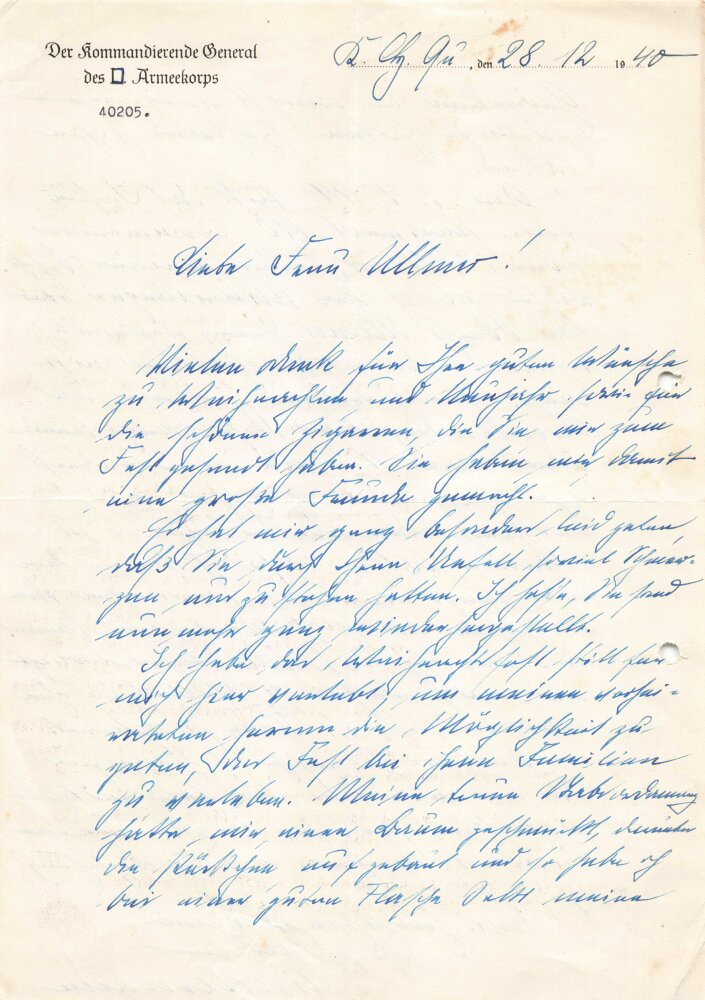 Der Kommandierende General
des . Armeekorps
40205.
K. Gf. Qu , den 28. 12 1940
Liebe Frau Ullmer!
Vielen Dank für Ihre guten Wünsche
zu Weihnachten und Neujahr, sowie für
die schönen Zigarren, die Sie mir zum
Fest gesandt haben. Sie haben mir damit
eine große Freude gemacht.
Es hat mir ganz besonders leid getan,
daß Sie durch Ihren Unfall soviel Schmer-
zen auszustehen hatten. Ich hoffe, Sie sind
nunmehr ganz wiederhergestellt.
Ich habe das Weihnachtsfest still für
mich hier verlebt, um meinen verhei-
rateten Herren die Möglichkeit zu
geben, das Fest bei ihren Familien
zu verleben. Meine treue
hatte mir einen Baum geschmückt, darunter
die Päckchen aufgebaut und so habe ich
bei einer guten Flasche Sekt meine